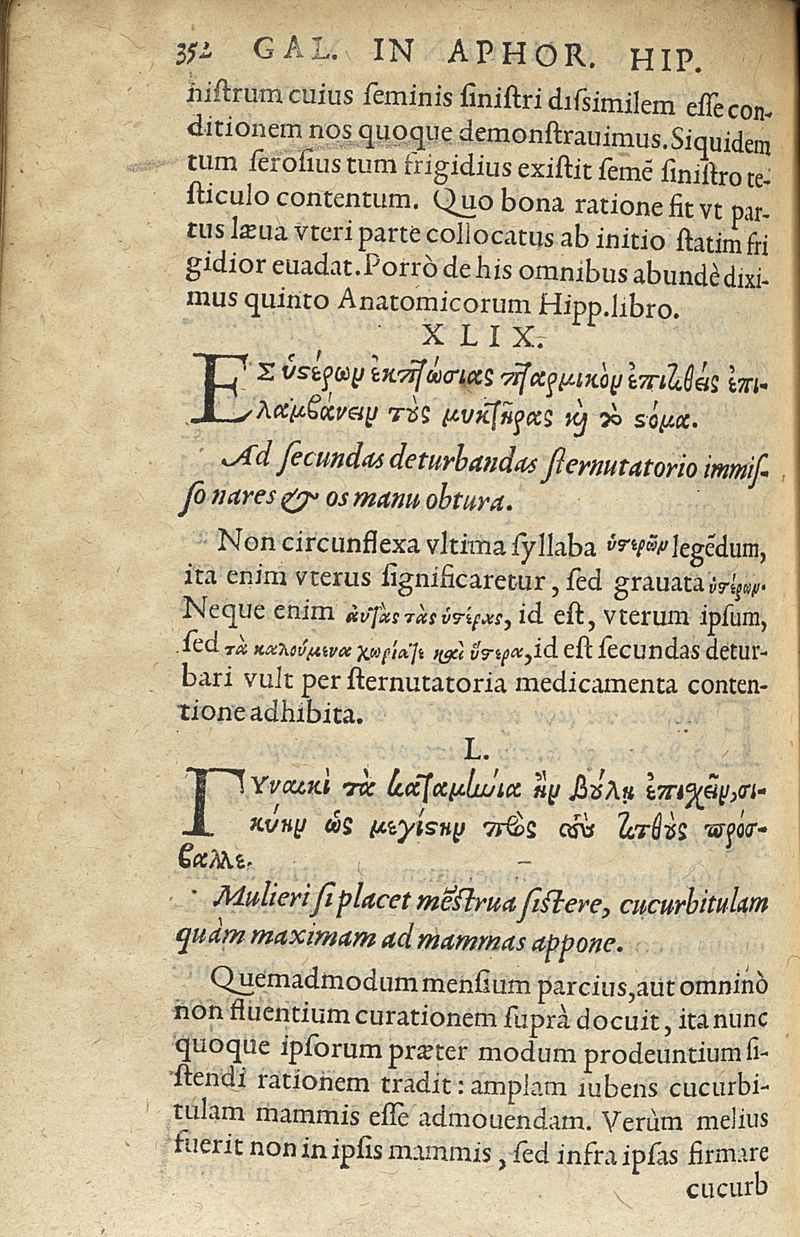 352 GAL. IN APHOR. HIP.
niſtrum cuius ſeminis ſiniſtri diſsimilem eſſe con-
ditionem nos quoque demonſtrauimus. Siquidem
tum ſeroſius tum frigidius exiſtit ſemē ſiniſtro te-
ſticulo contentum. Quo bona ratione fit vt par-
tus læua vteri parte collocatus ab initio ſtatim fri
gidior euadat. Porrò de his omnibus abundè dixi-
mus quinto Anatomicorum Hipp. libro.
XLIX.
ΕΣ ὑςέρων ἐκπτώσιας πταρμικὸν ἐπιτιθεὶς ἐπι-
λαμβάνειν τοὺς μυκτῆρας καὶ τὸ ςόμα.
Ad ſecundas deturbandas ſternutatorio immiſ-
ſo nares & os manu obtura.
Non circunflexa vltima ſyllaba ὑστερῶν legēdum,
ita enim vterus ſignificaretur, ſed grauata ὑστέρων.
Neque enim αὐτὰς τὰς ὑστέρας, id eſt, vterum ipſum,
ſed τὰ καλούμενα χωρία τε καὶ ὕστερα, id eſt ſecundas detur-
bari vult per ſternutatoria medicamenta conten-
tione adhibita.
L.
ΓΥναικὶ τὰ καταμώια ἢν βούλῃ ἐπιχεῖν, σι-
κύην ὡς μεγίςην πρὸς τοὺς τιτθοὺς πρόσ-
βαλλε.
Mulieri ſi placet mēſtrua ſiſtere, cucurbitulam
quàm maximam ad mammas appone.
Quemadmodum menſium parcius, aut omninò
non fluentium curationem ſuprà docuit, ita nunc
quoque ipſorum præter modum prodeuntium ſi-
ſtendi rationem tradit: amplam iubens cucurbi-
tulam mammis eſſe admouendam. Verùm melius
fuerit non in ipſis mammis, ſed infra ipſas firmare
cucurb